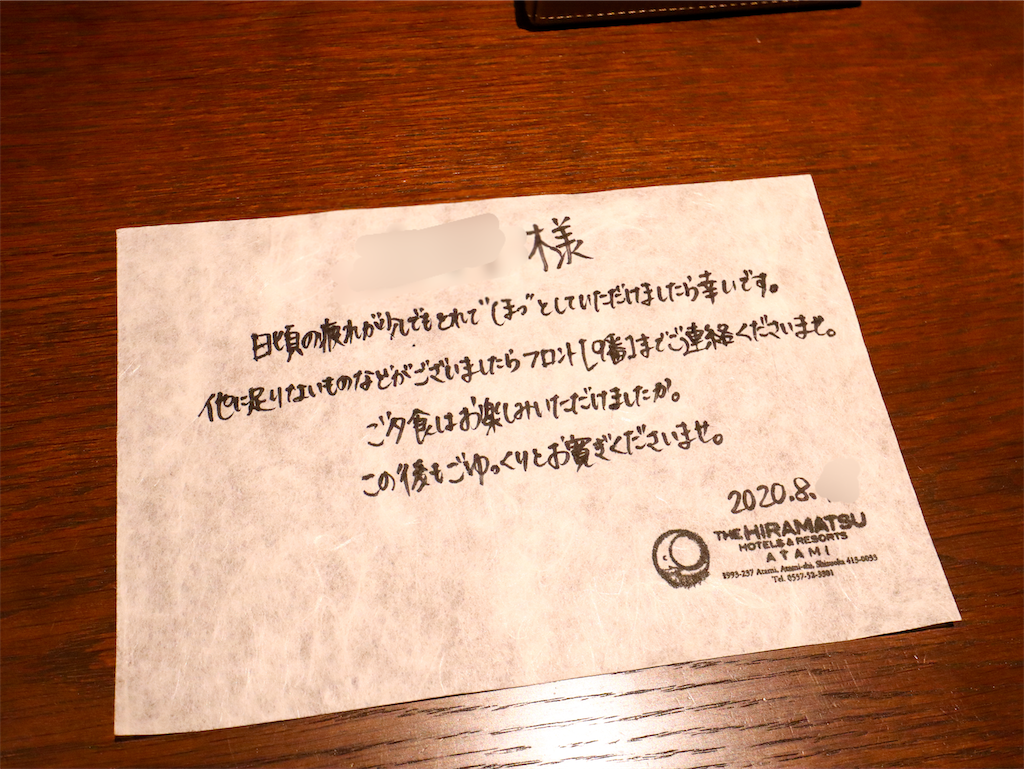 様
日頃の疲れが少しでもとれて"ほっ"としていただけましたら幸いです。
他に足りないものなどがございましたらフロント[9番]までご連絡くださいませ。
ご夕食はお楽しみいただけましたか。
この後もごゆっくりとお寛ぎくださいませ。
2020.8.
THE HIRAMATSU
HOTELS & RESORTS
ATAMI
1993-237 Atami, Atami-shi, Shizuoka 413-0033
Tel. 0557-52-3301